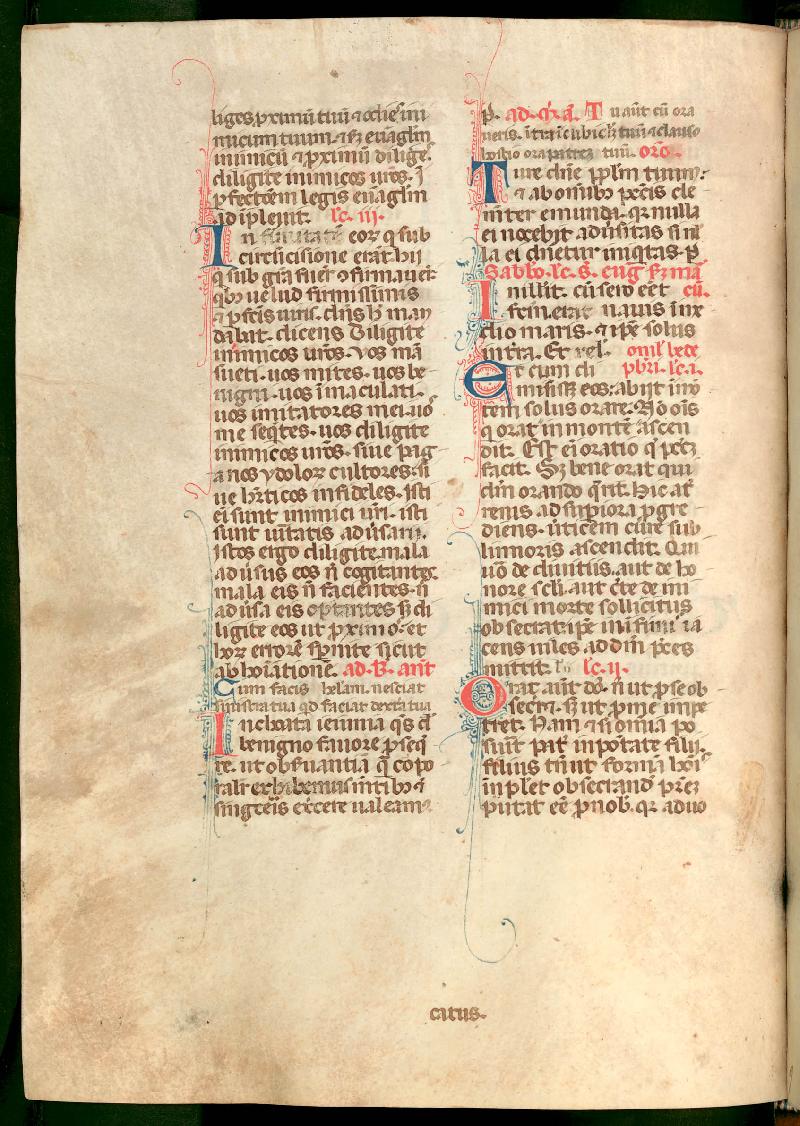 liges proximū tuū ⁊ odie ini
micum tuum. ⁊ sʒ euāglm̄
inimicū ⁊ ꝓximū dilige.
diligite inimicos uros. ī
ꝑfectōem legis euāglm̄
adīpleuit. lc. iii.
In eoꝝ q̄ sub
circūcisione erāt hii
q̄ sub gr̄a fuer̄ ⁊ firmauer̄
qb᷒ uelud firmissimis
⁊ ꝑfc̄is uiris. dn̄s h̄ man
dabat. dicens Diligite
inimicos ur̄os. vos mā
sueti. uos mites. uos be
nigni. uos īmaculati.
uos imitatores mei. uo
me seq̄tes. uos diligite
inimicos ur̄os. siue pag
anos ydoloꝝ cultores. si
ue hr̄ticos infideles. Isti
ei sunt inimici ur̄i. isti
sunt uītatis aduīsarii.
Istos ergo diligite. mala
aduīsus eos n̄ cogitantes.
mala eis n̄ facientes. n̄
aduīsa eis optantes sʒ di
ligite eos ut ꝓximos. et
hoꝝ errorē spnite sicut
abhoīationē. ad. B. ant̄
Cum facis helam. nesciat
sinistra tua qd faciat dextera tua
Inchoata ieiunia q̄s d̄
benigno fauore ꝓseq̄
re. ut obẜuantiā q̄ corpo
ralr̄ exhibemus mētib᷒ ⁊
singc̄is exc̄ere ualeam᷒
p̄. ad. Tu aut̄ cū ora
ueris. ītra ī cubicl̄m tuū ⁊ clauso
hostio ora patrē tuū. oro.
Ture dn̄e ppl̄m tuum:
⁊ ab oīnib᷒ pc̄cis cle
mēter emunda. qꝛ nulla
ei nocebit aduīsitas si nl̄
la ei dn̄etur iniq̄tas. p̄
Sabb̄o. lc. S. eug̅ sʒ mā
In illīt. cū sero eēt cū.
fcm̄ erat nauis ī me
dio maris. ⁊ ip̄e solus
in tr̄a. Et rel. omīl bede
Et cum di pbr̄i. lc. i.
misisset eos: abiit ī mō
tem solus orare. Nō ōis
q̄ orat in montē ascen
dit. Est ei oratio q̄ pctm̄
facit. Sʒ bene orat qui
dm̄ orando q̄rit. Hic at̄
renis ad suꝑiora ꝓgre
diens. ūticem cure sub
limioris ascendit. Qui
uō de diuitiis. aut de ho
nore scl̄i. aut c̄te de ini
mici morte sollicitus
obsecrat: ip̄e in īfimis ia
cens uiles ad dm̄ p̄ces
mittit. lc. ii.
Orat aut̄ dn̄s. n̄ ut ꝓ se ob
secret. sʒ ut ꝓ me impe
tret. Nam ⁊ si omīa po
suit pat̄ in potate filii.
filius tn̄ ut formā hoīs
īpleret obsecrand̄ pr̄eʒ
putat eē ꝓ nob᷒. qꝛ aduo
catus.